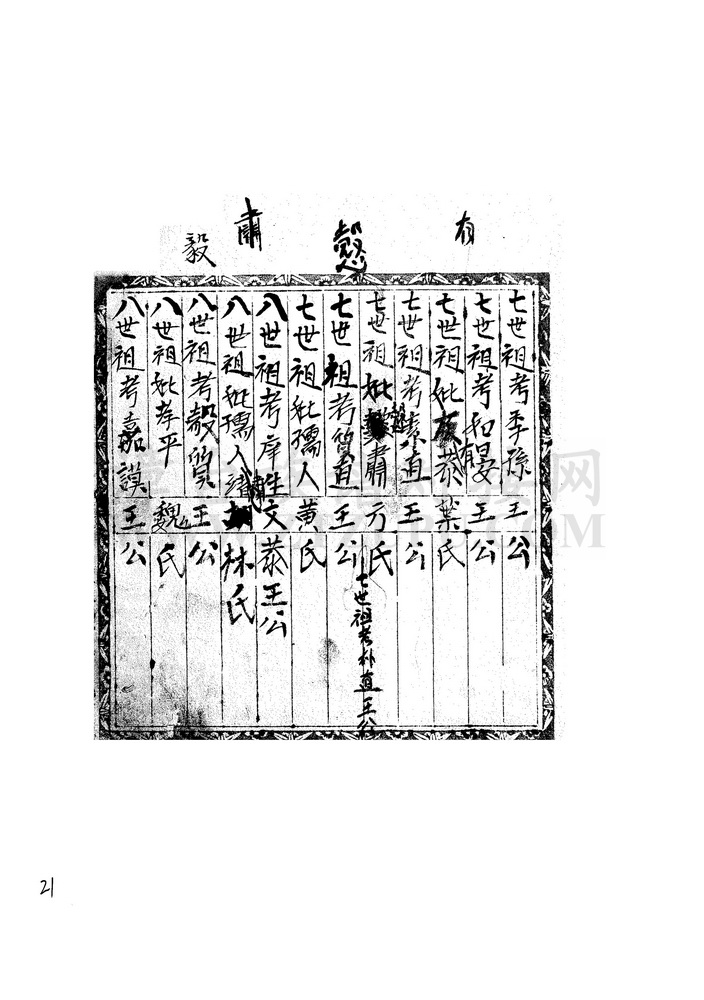 有
愨
肅
毅
七世祖考季孫王公
七世祖考和晏王公
七世祖妣恭葉氏
七世祖考直王公
七世祖妣肅方氏
七世祖考朴直王公
七世祖考質直王公
七世祖妣孺人黃氏
八世祖考庠生文恭王公
八世祖妣孺人林氏
八世祖考毅質王公
八世祖妣孝平魏氏
八世祖考嘉謨王公
21